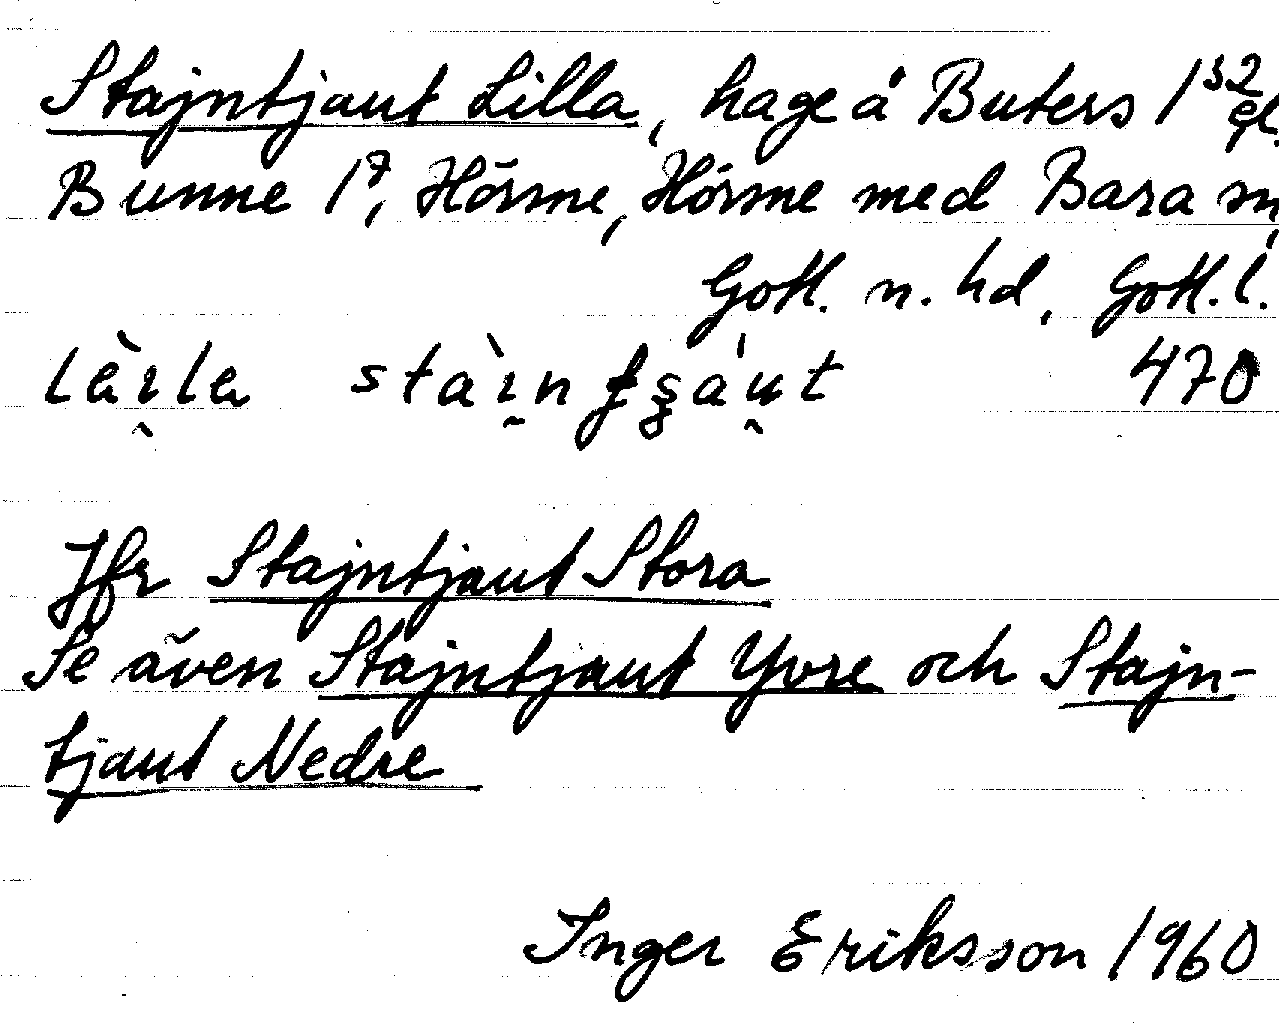 Stajntjaut Lilla, hage å Buters 1³² el.
Bunne 1⁷, Hörsne, Hörsne med Bara sn,
Gotl. n. hd, Gotl. l.
470
Jfr Stajntjaut Stora
Se även Stajntjaut Yvre och Stajn-
tjaut Nedre
Inger Eriksson 1960